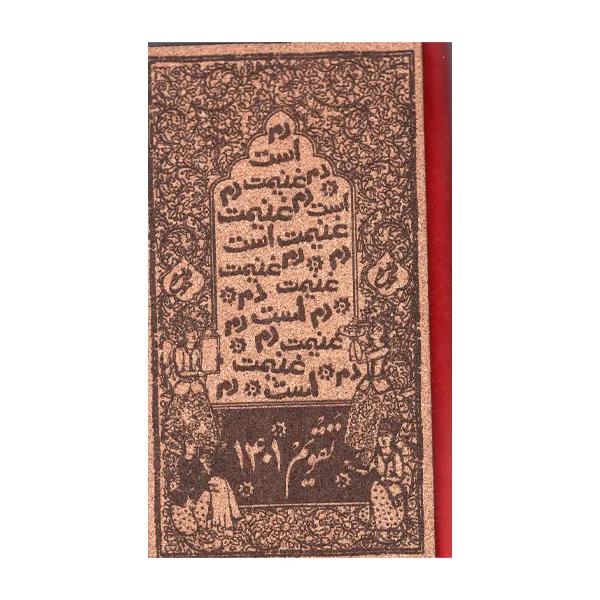 دم
است
دم غنیمت دم
است دم غنیمت
غنیمت است
دم غنیمت
غنیمت دم
دم است دم
غنیمت دم
غنیمت
دم است دم
تقویم ۱۴۰۱